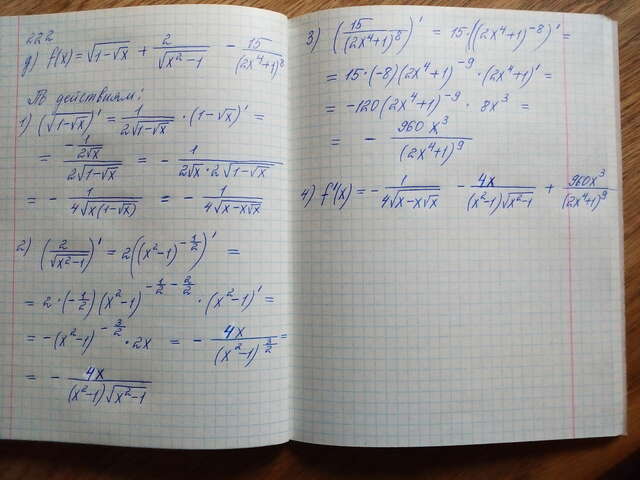 222
g) f(x) = √(1-√x) + 2/√(x²-1) - 15/(2x⁴+1)⁸
По действиям:
1) (√(1-√x))' = 1/(2√(1-√x)) · (1-√x)' =
= (-1/(2√x))/(2√(1-√x)) = - 1/(2√x · 2√(1-√x)) =
= - 1/(4√(x(1-√x))) = - 1/(4√(x-x√x))
2) (2/√(x²-1))' = 2((x²-1)^(-1/2))' =
= 2·(-1/2)(x²-1)^(-1/2 - 2/2) · (x²-1)' =
= -(x²-1)^(-3/2) · 2x = - 4x/(x²-1)^(3/2) =
= - 4x/((x²-1)√(x²-1))
3) (15/(2x⁴+1)⁸)' = 15·((2x⁴+1)⁻⁸)' =
= 15·(-8)(2x⁴+1)⁻⁹ · (2x⁴+1)' =
= -120(2x⁴+1)⁻⁹ · 8x³ =
= - 960x³/(2x⁴+1)⁹
4) f'(x) = - 1/(4√(x-x√x)) - 4x/((x²-1)√(x²-1)) + 960x³/(2x⁴+1)⁹